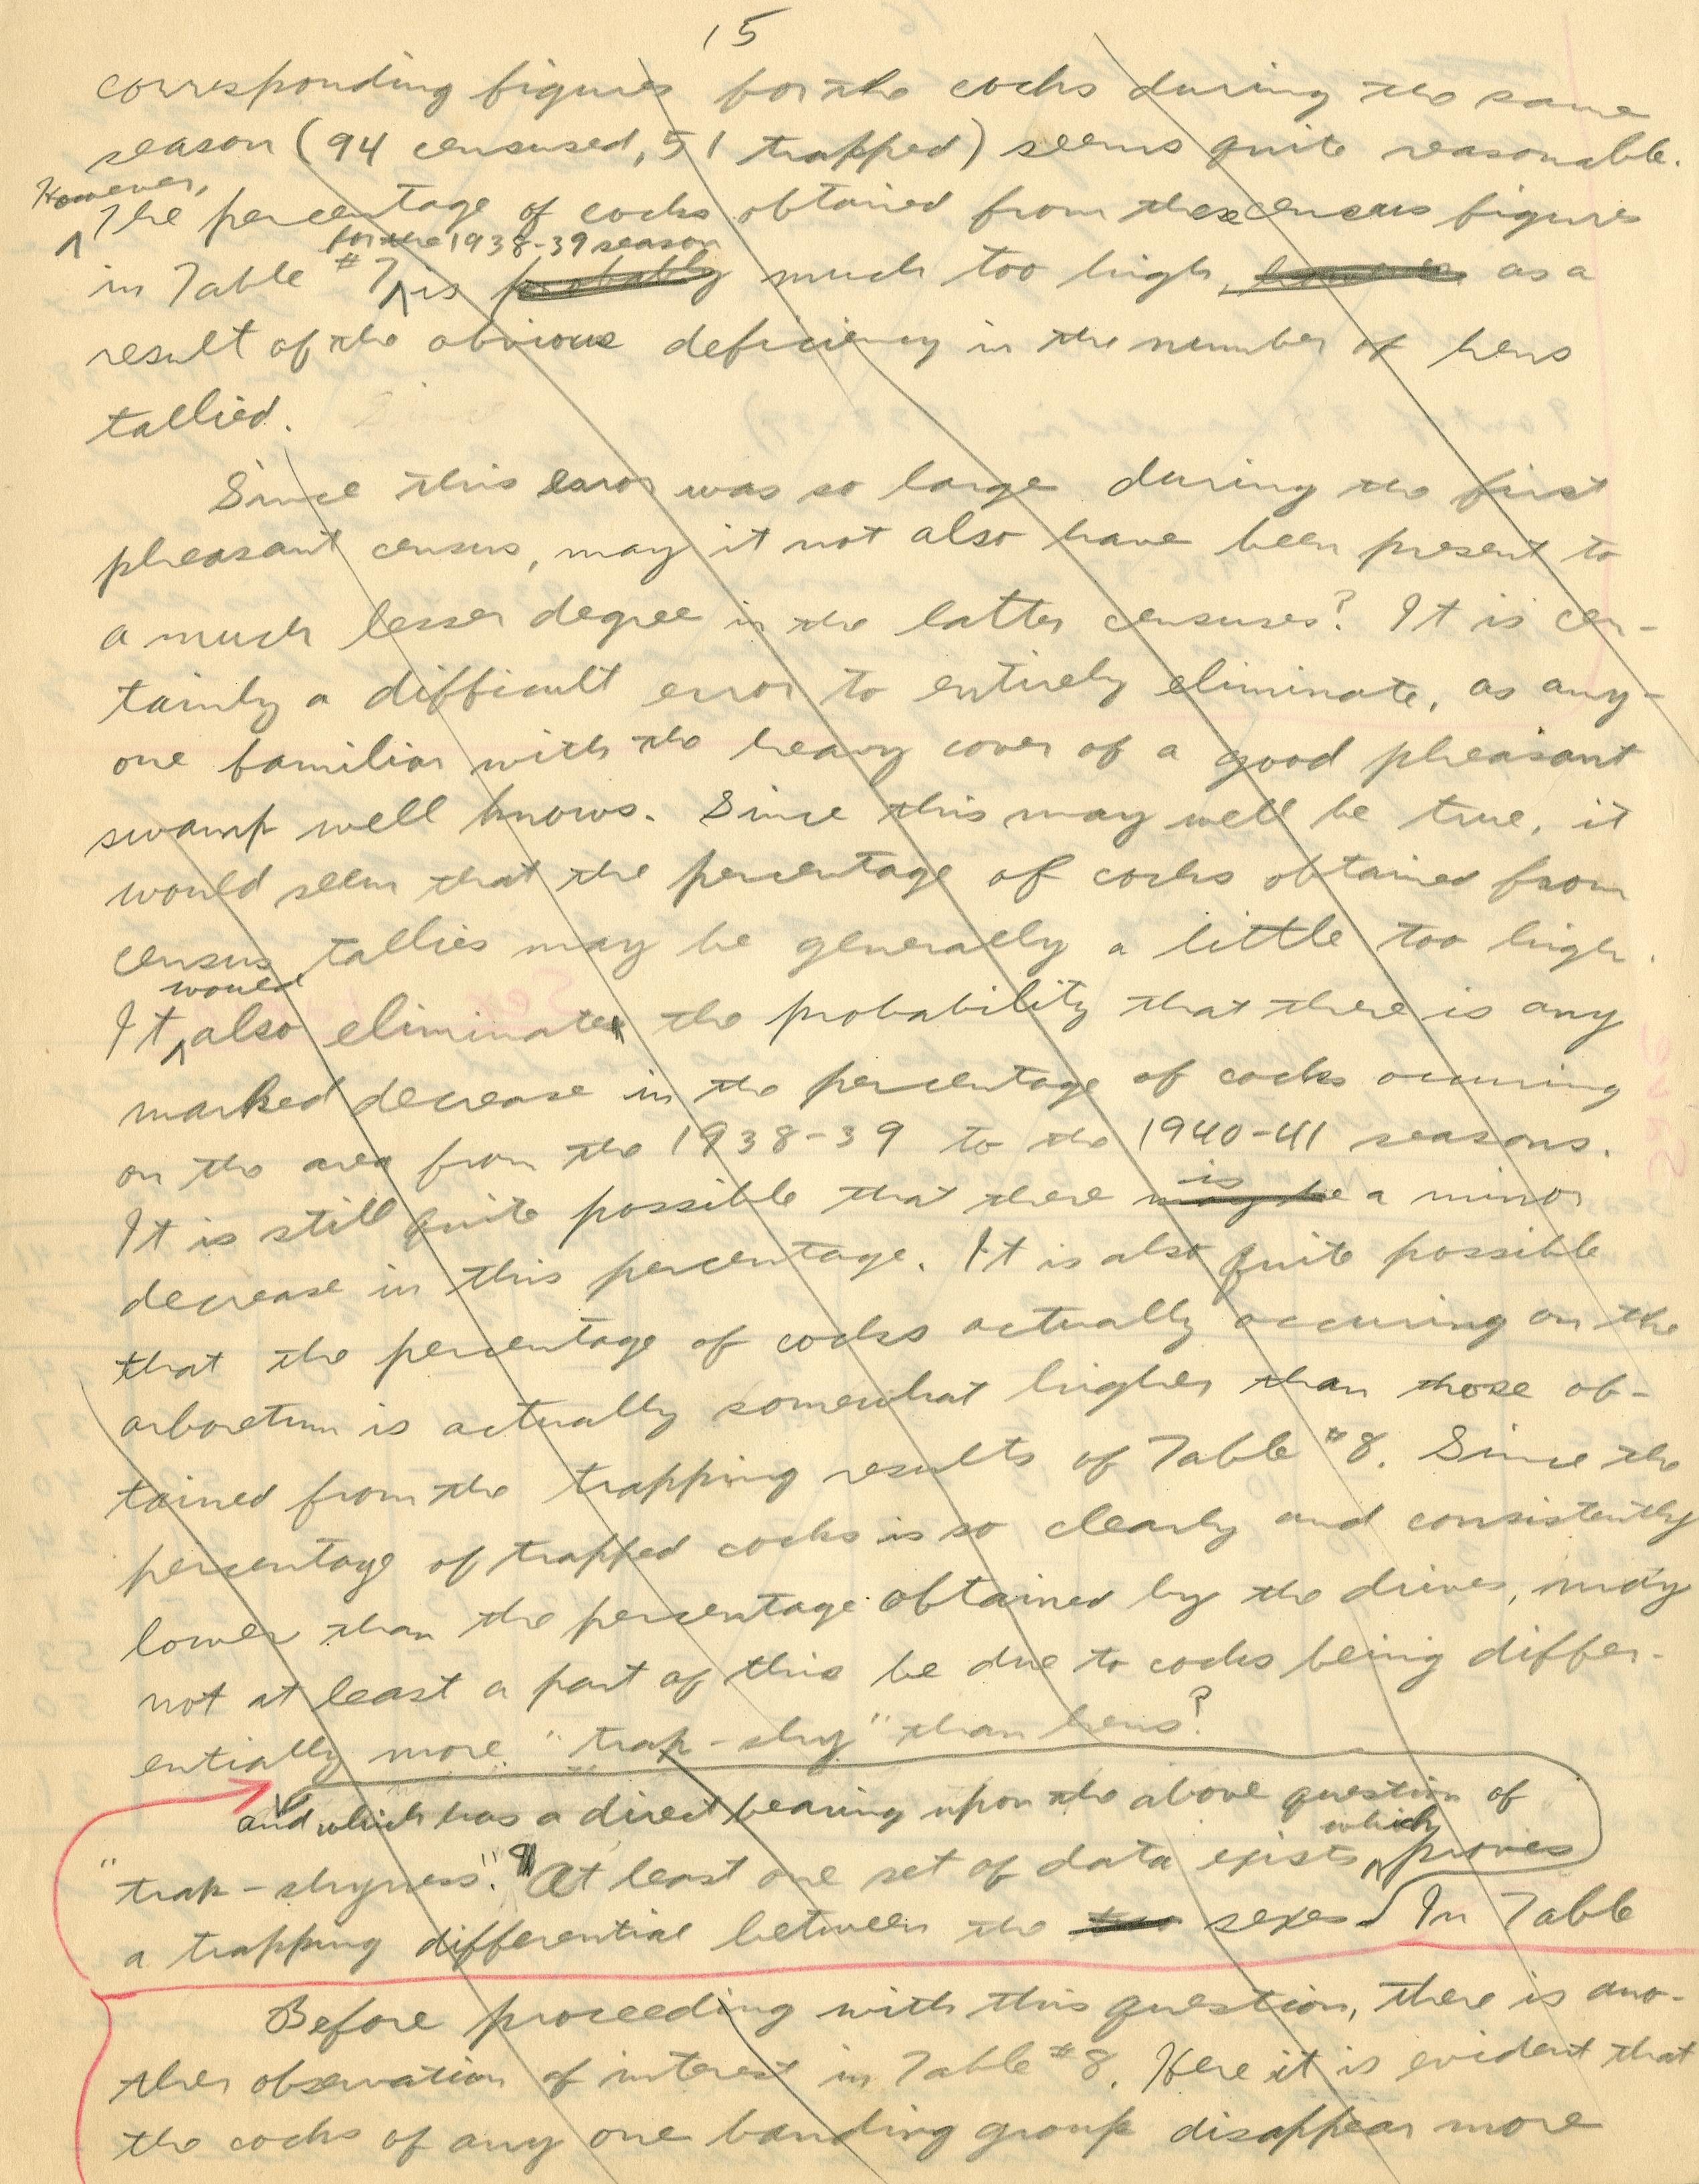 15
corresponding figures for the cocks during the same
season (94 censused, 51 trapped) seems quite reasonable.
However,
The percentage of cocks obtained from these census figures
for the 1938-39 season
in Table #7 is probably much too high, as a
result of the obvious deficiency in the number of hens
tallied.
Since this error was so large during the first
pheasant census, may it not also have been present to
a much lesser degree in the latter censuses? It is cer-
tainly a difficult error to entirely eliminate, as any-
one familiar with the heavy cover of a good pheasant
swamp well knows. Since this may well be true, it
would seem that the percentage of cocks obtained from
census tallies may be generally a little too high.
would
It also eliminate the probability that there is any
marked decrease in the percentage of cocks occuring
on the area from the 1938-39 to the 1940-41 seasons.
is
It is still quite possible that there may be a minor
decrease in this percentage. It is also quite possible
that the percentage of cocks actually occuring on the
arboretum is actually somewhat higher than those ob-
tained from the trapping results of Table #8. Since the
percentage of trapped cocks is so clearly and consistently
lower than the percentage obtained by the drives, may
not at least a part of this be due to cocks being differ-
entially more "trap-shy" than hens?
and which has a direct bearing upon the above question of
which
"trap-shyness." At least one set of data exists proves
a trapping differential between the two sexes. In Table
Before proceeding with this question, there is ano-
ther observation of interest in Table #8. Here it is evident that
the cocks of any one banding group disappear more